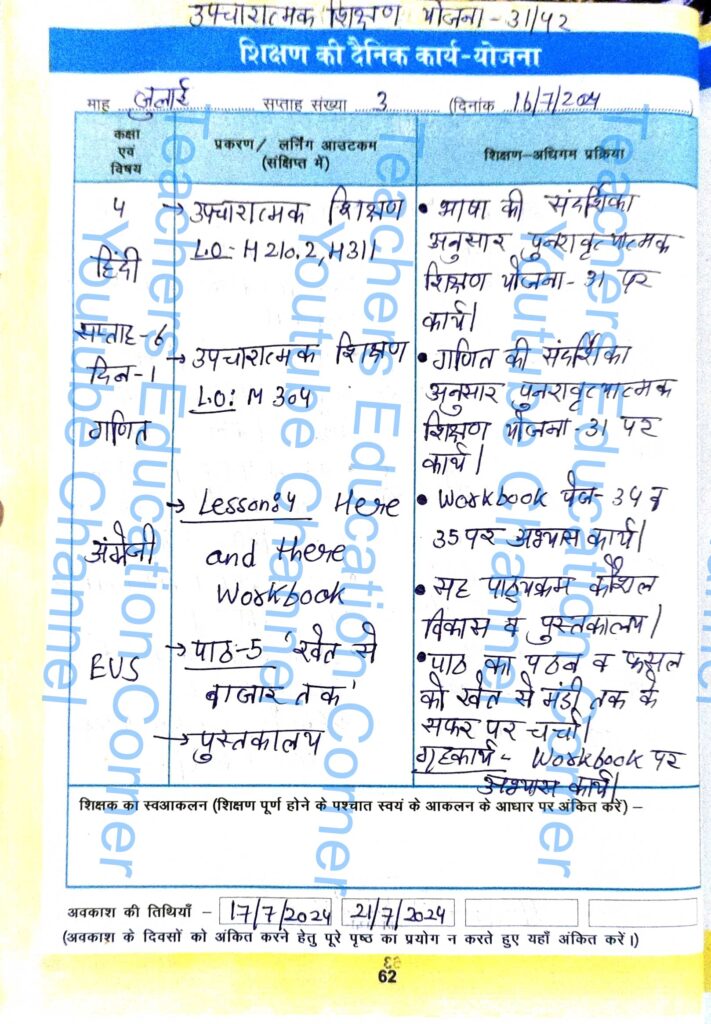 उपचारात्मक शिक्षण योजना - 31/42
शिक्षण की दैनिक कार्य-योजना
माह जुलाई सप्ताह संख्या 3 (दिनांक 16/7/2024)
कक्षा एवं विषय
प्रकरण/ लर्निंग आउटकम
(संक्षिप्त में)
शिक्षण-अधिगम प्रक्रिया
4
हिंदी
सप्ताह-6
दिन-1
गणित
अंग्रेजी
EVS
→ उपचारात्मक शिक्षण
L.O:- H 210.2, H311
→ उपचारात्मक शिक्षण
L.O: M 304
→ Lesson:4 Here
and there
Workbook
→ पाठ-5 'खेत से
बाजार तक'
→ पुस्तकालय
• भाषा की संदर्शिका
अनुसार पुनरावृत्यात्मक
शिक्षण योजना - 31 पर
कार्य।
• गणित की संदर्शिका
अनुसार पुनरावृत्यात्मक
शिक्षण योजना - 31 पर
कार्य।
• Workbook पेज- 34 व
35 पर अभ्यास कार्य।
• सह पाठ्यक्रम कौशल
विकास व पुस्तकालय।
• पाठ का पठन व फसल
की खेत से मंडी तक के
सफर पर चर्चा।
गृहकार्य - Workbook पर
अभ्यास कार्य।
शिक्षक का स्वआकलन (शिक्षण पूर्ण होने के पश्चात स्वयं के आकलन के आधार पर अंकित करें) –
अवकाश की तिथियाँ – 17/7/2024 21/7/2024
(अवकाश के दिवसों को अंकित करने हेतु पूरे पृष्ठ का प्रयोग न करते हुए यहाँ अंकित करें।)
62
Teachers Education Corner
Youtube Channel
Teachers Education Corner
Youtube Channel
Teachers Education Corner
Youtube Channel